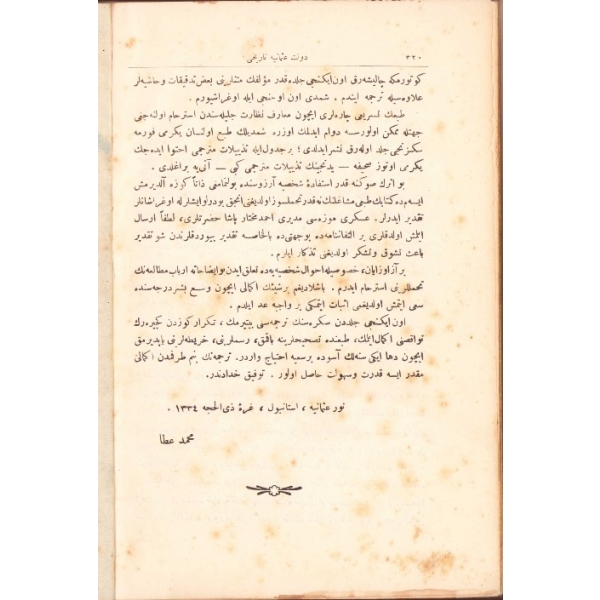 ٣٢٠
دولت عثمانیه تاریخی
کوتورمکه چالیشه‌رق اون ایکنجی جلده قدر مؤلفك متنلرینی بعض تدقیقات و حاشیه‌لر
علاوه‌سیله ترجمه ایتدم . شمدی اون اوچنجی ایله اوغراشیورم .
طبعك تسریعی چاره‌لری ایچون معارف نظارت جلیله‌سندن استرحام اولنه‌جق
جهتله ممکن اولورسه دوام ایدلمك اوزره شمدیلك طبع اولنان یکرمی فورمه
سکزنجی جلد اوله‌رق نشر ایدلدی ؛ بر جدول ایله تذییلات مترجمی احتوا ایده‌جك
یکرمی اوتوز صحیفه — یدنجینك تذییلات مترجمی کبی — آنی‌یه براغلدی .
بو اثرك صوکنه قدر استفادهٔ شخصیه آرزوسنده بولنمامغی ذاتاً کوزه آلدیرمش
ایسه‌م‌ده کتابك طبعی مشاغلنك نه‌قدر تحملسوز اولدیغنی آنجق بو درلو ایشلرله اوغراشانلر
تقدیر ایدرلر . عسکری موزه‌سی مدیری احمد مختار پاشا حضرتلری ، لطفاً ارسال
ایتمش اولدقلری بر التفاتنامه‌ده بو جهتی‌ده بالخاصه تقدیر بیوردقلرندن شو تقدیر
باعث تشوق و تشکر اولدیغنی تذکار ایلرم .
بر آز اوزایان ، خصوصیله احوال شخصیه‌یه‌ده تعلق ایدن بو ایضاحاته ارباب مطالعه‌نك
تحمللرینی استرحام ایدرم . باشلادیغم بر شیئك اکمالی ایچون وسع بشر درجه‌سنده
سعی ایتمش اولدیغمی اثبات ایتمکی بر واجبه عد ایلدم .
اون ایکنجی جلددن سکره‌سنك ترجمه‌سی بیتیرمك ، تکرار کوزدن کچیره‌رك
نواقصنی اکمال ایتمك ، طبعنده تصحیحلرینه باقمق ، رسملرینی ، خریطه‌لرینی یاپدیرمق
ایچون دها ایکی سنه‌لك آسوده بر سعیه احتیاج واردر . ترجمه‌نك بنم طرفمدن اکمالی
مقدر ایسه قدرت و سهولت حاصل اولور . توفیق خدادندر .
نور عثمانیه ، استانبول ، غرهٔ ذی الحجه ١٣٣٤ .
محمد عطا